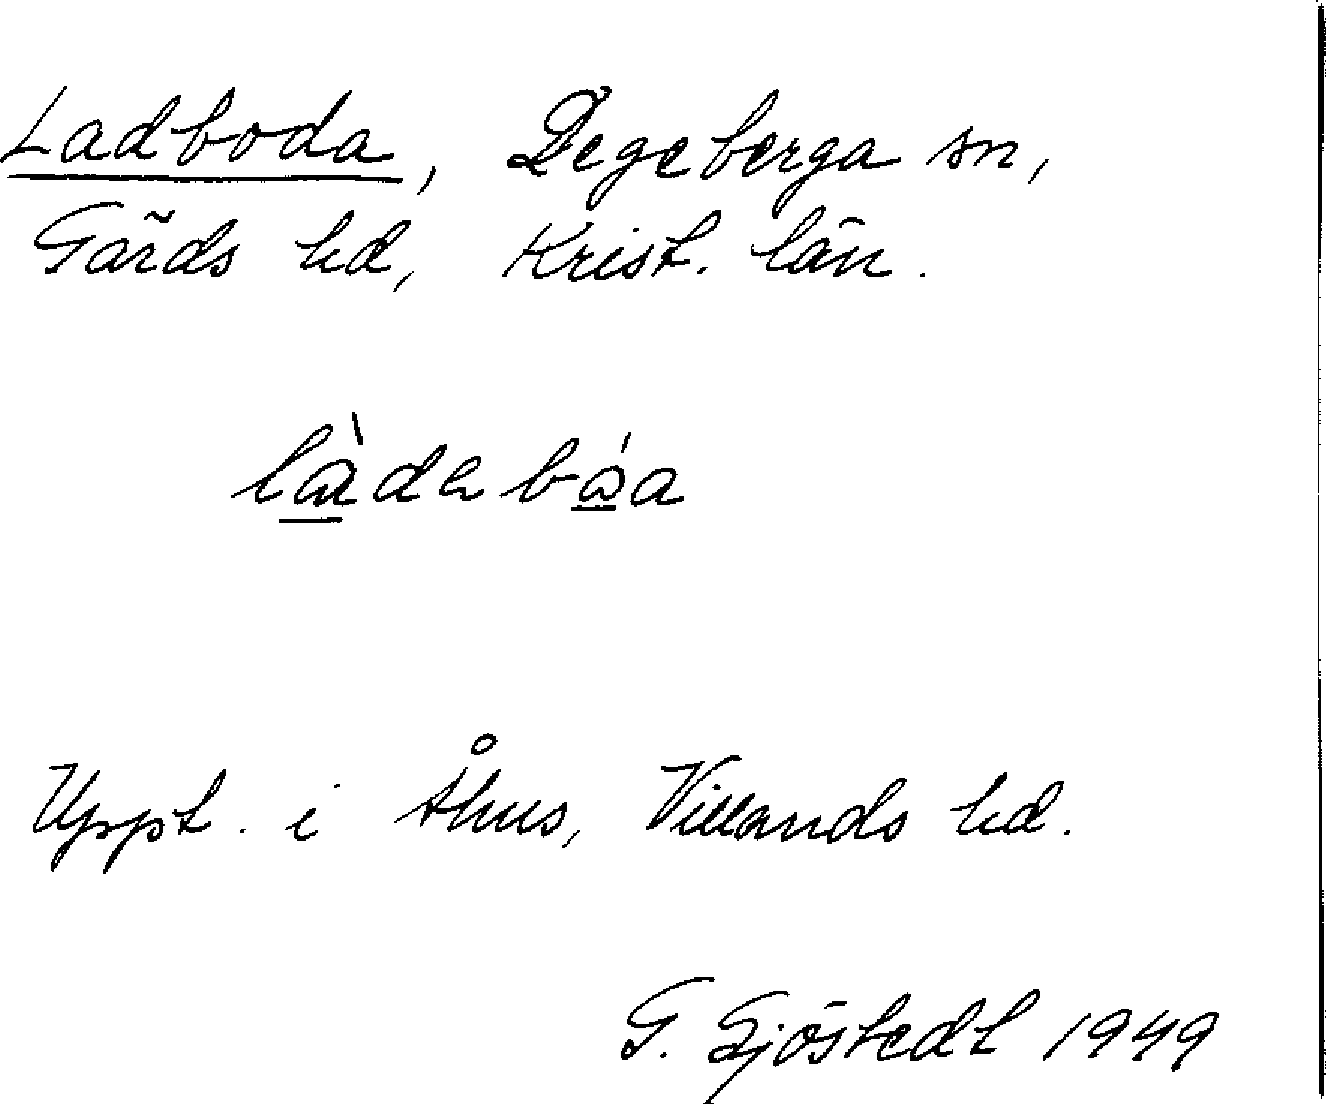 Ladboda, Degeberga sn,
Gärds hd, Krist. län.
làdabåa
Uppt. i Åhus, Villands hd.
G. Sjöstedt 1949